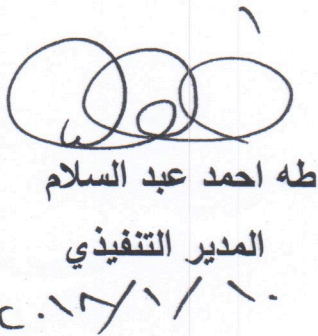 طه احمد عبد السلام
المدير التنفيذي
٢٠١٨/١/١٠